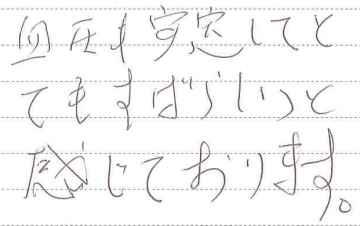 血圧も安定してと
てもすばらしいと
感じております。